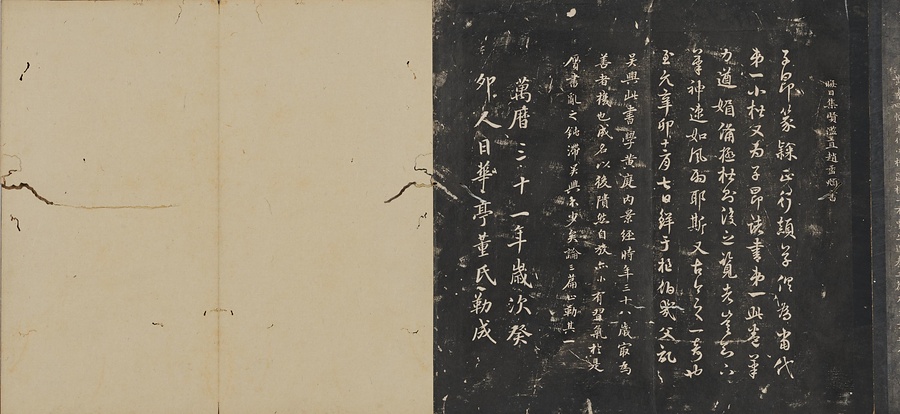 晦日集賢直趙孟頫書
子昂篆隸正行顛草俱為當代
第一小楷又為子昂諸書第一此卷筆
力遒媚備極楷則後之覽者豈知下
筆神速如風雨耶斯又古今之一奇也
至元辛卯十二月七日鮮于樞伯幾父記
吳興此書學黃庭內景經時年三十八歲最為
善者機也成名以後隤然自放亦小有習氣於是
贗書亂之鈍滯吳興不少矣論三篇止勒其一
萬曆三十一年歲次癸
卯人日華亭董氏勒成